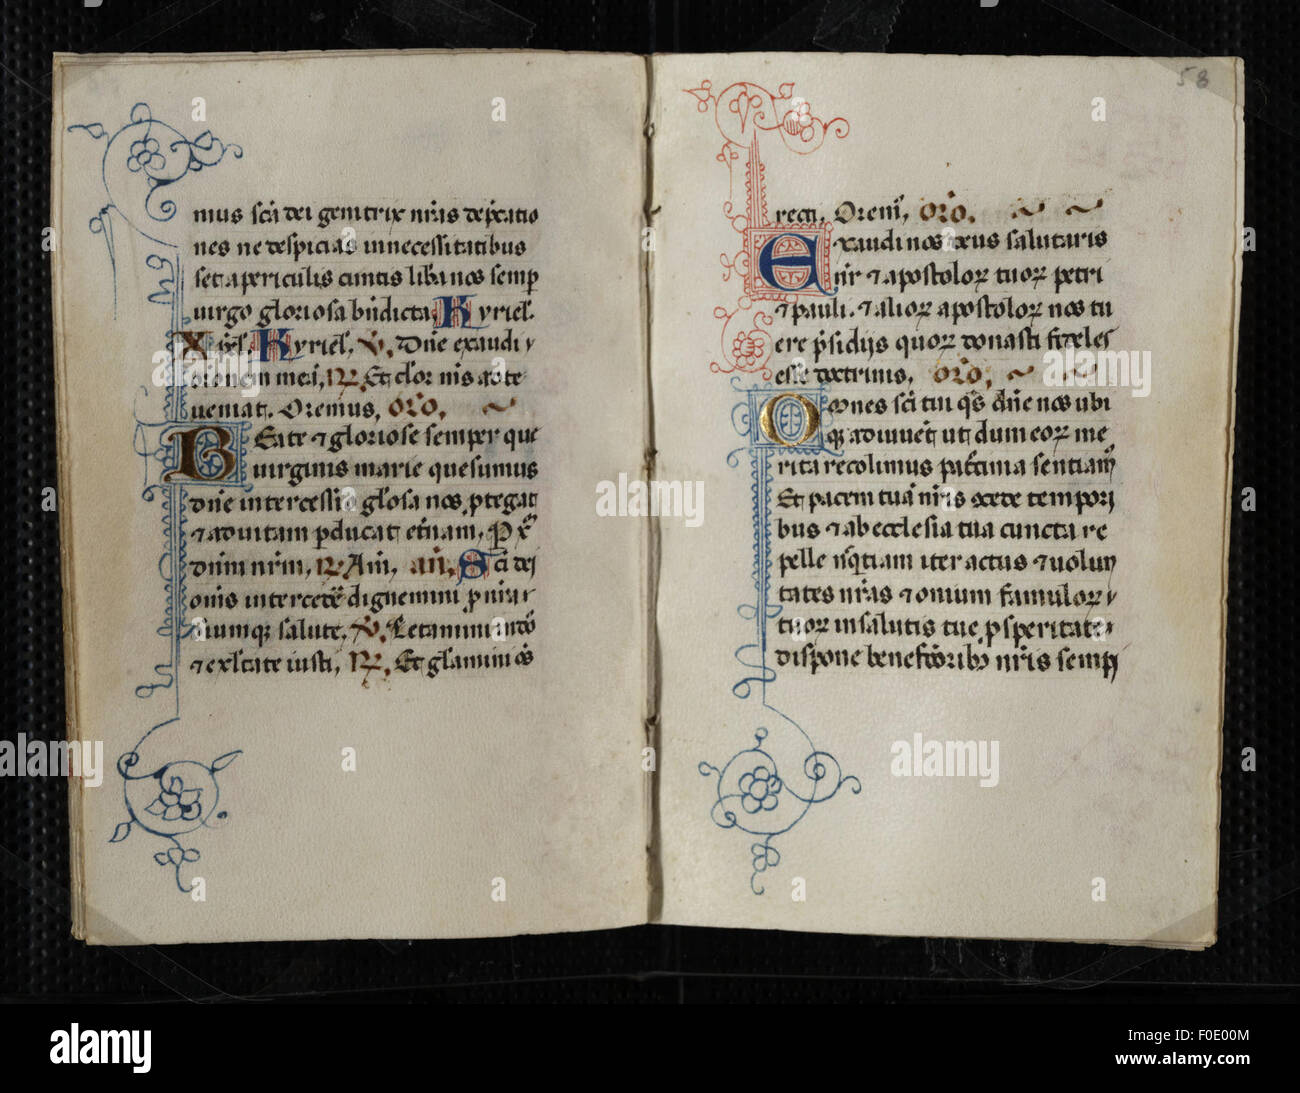 mus sc̄a dei genitrix nr̄as dep̄catio
nes ne despicias in necessitatibus
set a periculis cūctis liba nos semp
uirgo gloriosa bn̄dicta. Kyriel̄.
Xp̄el̄. Kyriel̄. V̄. Dn̄e exaudi
orionem meā, R̄. Et clor n̄is ad te
ueniat. Oremus, oro̅.
Beate ⁊ gloriose semper que
uirginis marie quesumus
dn̄e intercessio gl̄osa nos, ꝓtegat
⁊ ad uitam ꝑducat et̄nam. P x̄
dn̄m nr̄m, R̄. Am̄, an̄. Sc̄i dei
om̄s intercete
salute. V̄. Letamini in dn̄o
⁊ exl̄tate iusti, R̄. Et gl̄amini os
58
recti. Orem̄, oro̅.
Exaudi nos deus salutaris
nr̄ ⁊ apostoloꝝ tuoꝝ petri
⁊ pauli. ⁊ alioꝝ apostoloꝝ nos tu
ere p̄sidijs quoꝝ donasti fideles
esse doctrinis, oro̅.
Omnes sc̄i tui qs̄ dn̄e nos ubi
qꝫ adiuuēt ut dum eoꝝ me
rita recolimus pat̄cinia sentiam̄
Et pacem tuā nr̄is ↄcede tempori
bus ⁊ ab ecclesia tua cuncta re
pelle neq̄tiam iter actus ⁊ uolun
tates nr̄as ⁊ omium famuloꝝ
tuoꝝ in salutis tue ꝓsperitate
dispone benefc̄oribꝫ nr̄is sempi
alamy
Image ID: F0E00M
www.alamy.com